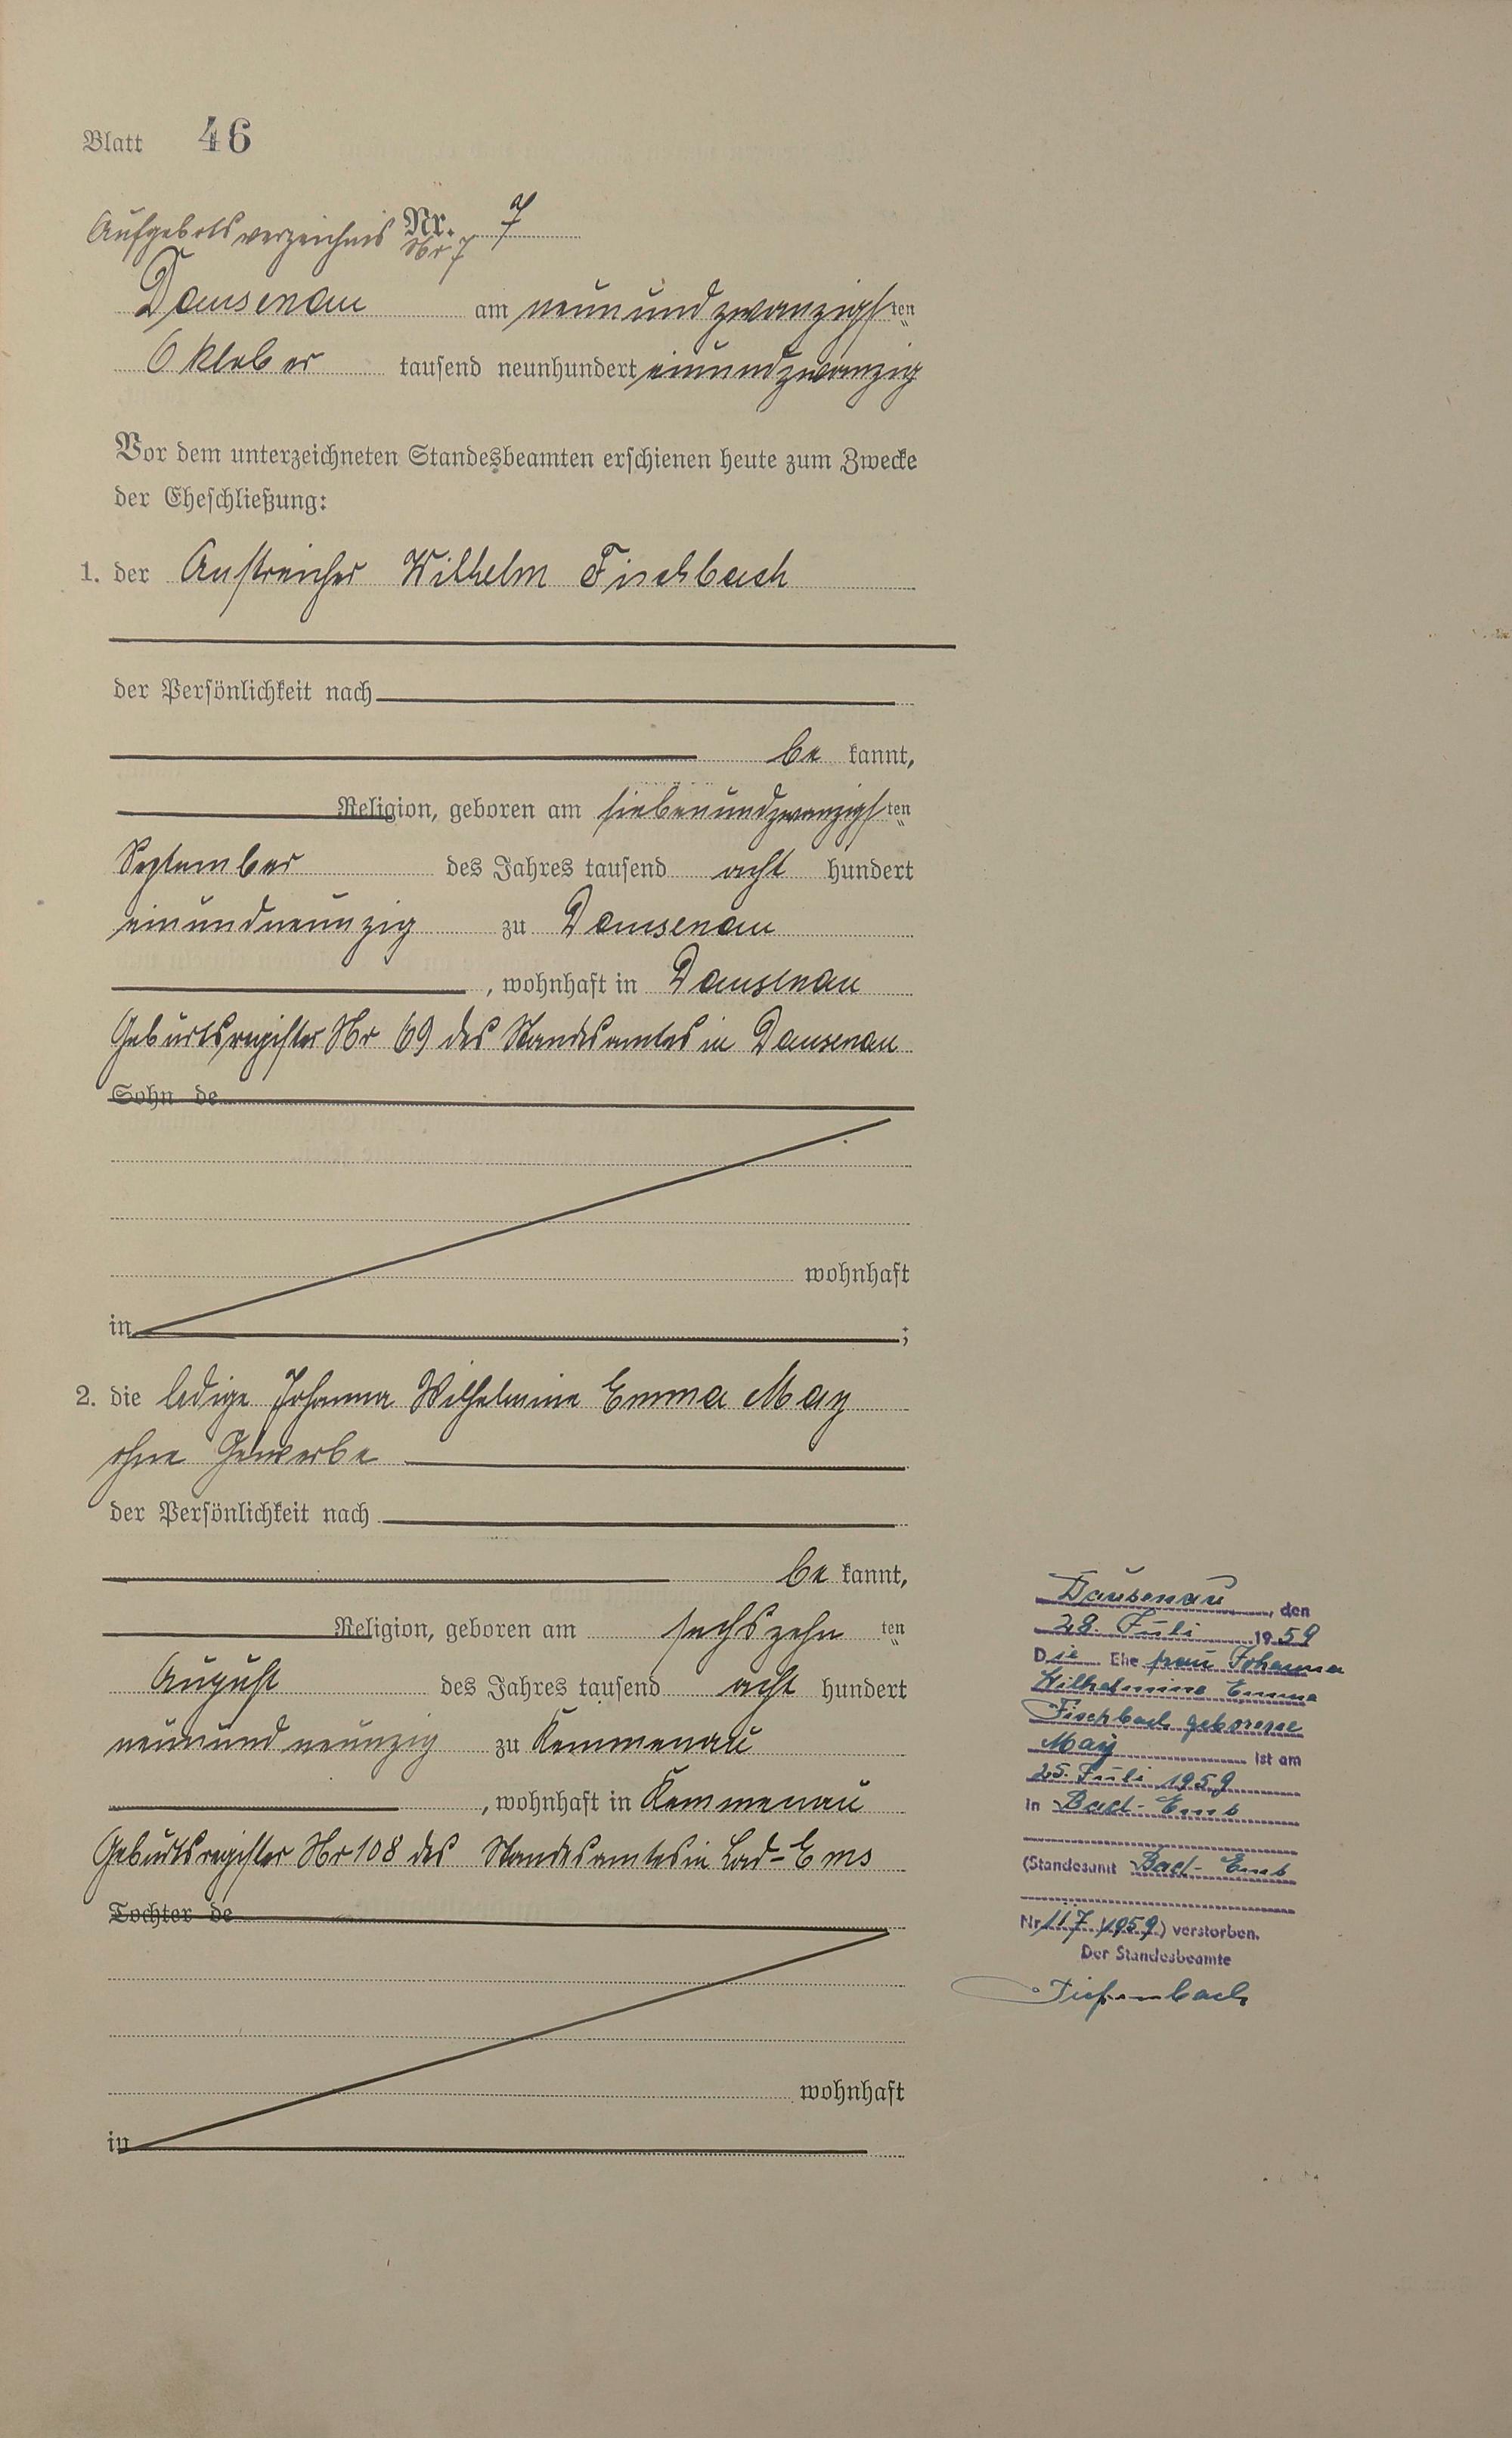 Blatt 46
Aufgebotsverzeichnis Nr. 7
Nr 7
Dausenau am neunundzwanzigsten
Oktober tausend neunhundert einundzwanzig
Vor dem unterzeichneten Standesbeamten erschienen heute zum Zwecke
der Eheschließung:
1. der Anstreicher Wilhelm Fischbach
der Persönlichkeit nach
be kannt,
Religion, geboren am siebenundzwanzigsten
September des Jahres tausend acht hundert
einundneunzig zu Dausenau
, wohnhaft in Dausenau
Geburtsregister Nr 69 des Standesamtes in Dausenau
Sohn de
wohnhaft
in ;
2. die ledige Johanna Wilhelmine Emma May
ohne Gewerbe
der Persönlichkeit nach
be kannt,
Religion, geboren am sechszehn ten
August des Jahres tausend acht hundert
neunundneunzig zu Kemmenau
, wohnhaft in Kemmenau
Geburtsregister Nr 108 des Standesamtes in Bad-Ems
Tochter de
wohnhaft
in
Dausenau, den
28. Juli 1959
Die Ehefrau Johanna
Wilhelmine Emma
Fischbach geborene
May ist am
25. Juli 1959
in Bad-Ems
(Standesamt Bad-Ems
Nr 117/1959) verstorben.
Der Standesbeamte
Tiefenbach